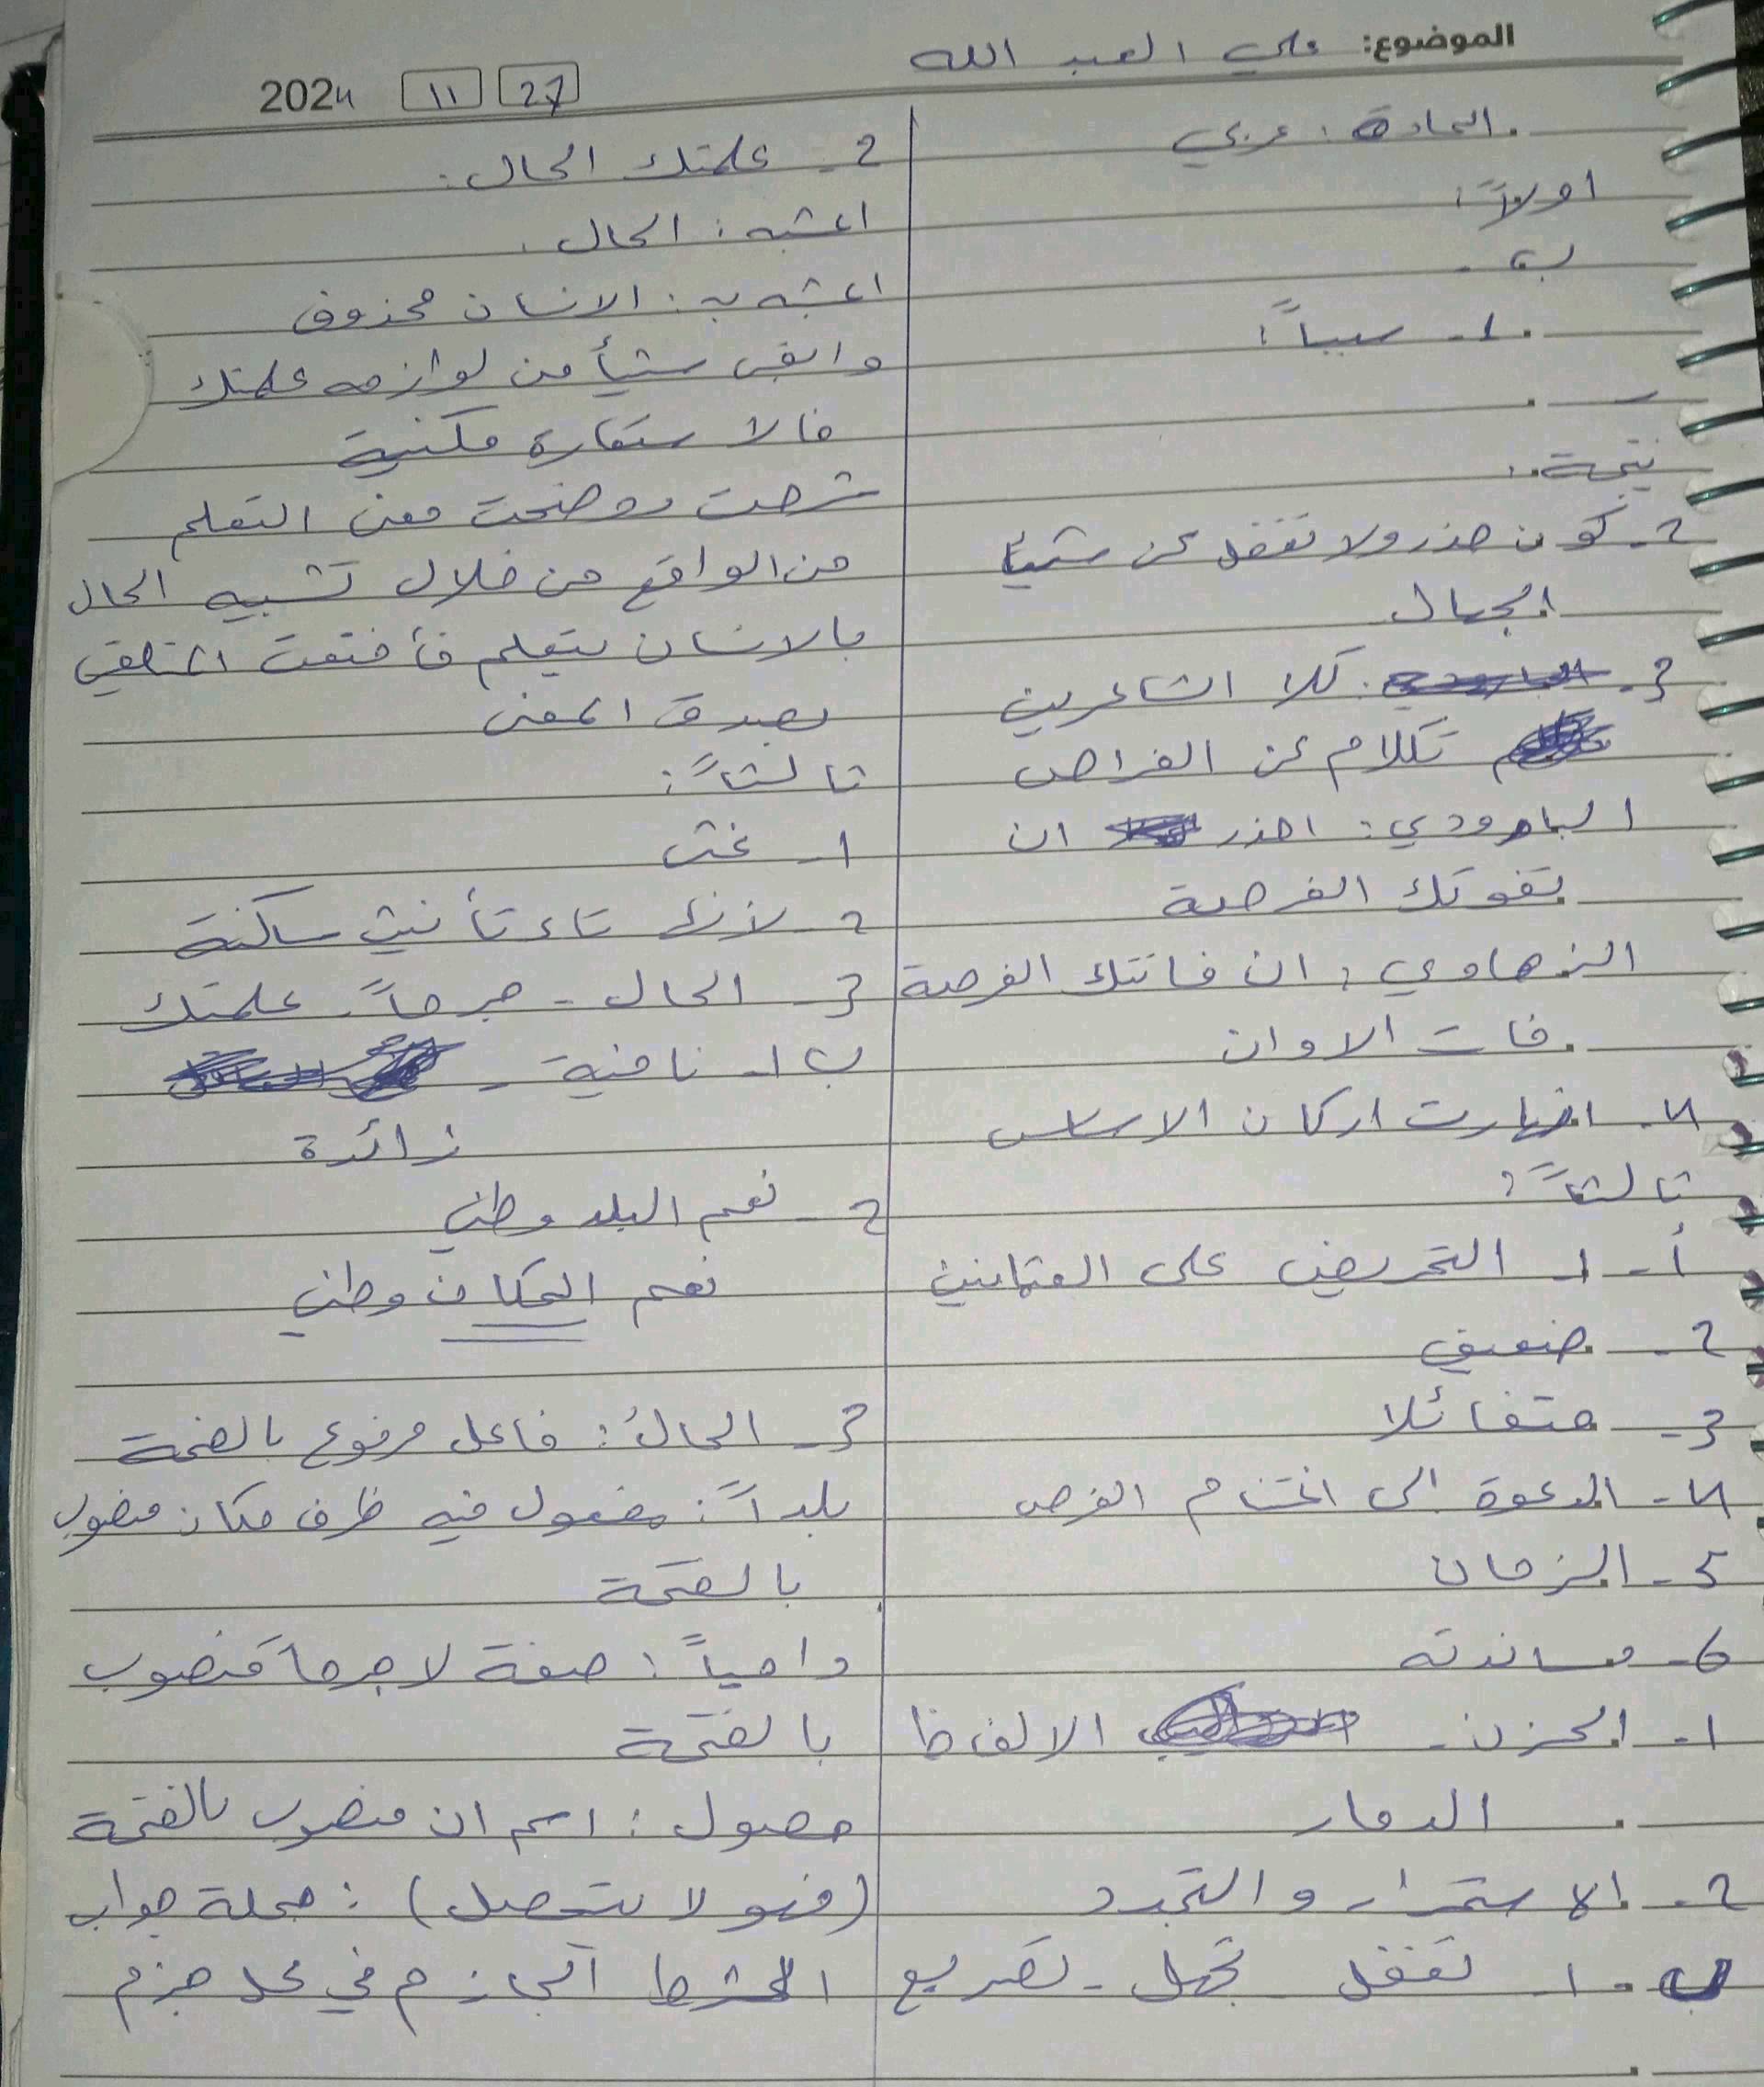 الموضوع: علي العبد الله
27 11 2024
المادة: عربي
اولاً:
ب.
1- سبباً:
نتيجة:
2- كون حذر ولا تغفل عن شيئاً
الجمال
3- كلا الشاعرين
تكلام عن الفراص
البامرودي: احذر ان
تفوتك الفرصة
الزهاوي: ان فاتتك الفرصة
فات الاوان
4- انهارت اركان الاساس
ثالثاً:
أ- 1- التحريض على العثمانين
2- ضعيف
3- متفائلا
4- الدعوة الى اغتنام الفرص
5- الزمان
6- مساندته
1- الحزن - الالفاظ
الدمار
2- الاستمرار والتجدد
ب 1- تغفل تجهل - تصريع
2- علمتك الحال:
المشبه: الحال.
المشبه به: الانسان محذوف
وابقى شيأ من لوازمه علمتك
فالاستعارة مكنية
شرحت ووضحت معنى التعلم
من الواقع من خلال تشبيه الحال
بالانسان يتعلم فأقنعت المتلقي
بصدق المعنى
ثالثاً:
1- غنى
2- لأنها تاء تأنيث ساكنة
3- الحال - جرحاً. علمتك
ب 1- نافية -
زائدة
2- نعم البلد وطني
نعم المكان وطني
3- الحالُ: فاعل مرفوع بالضمة
بلداً: مفعول فيه ظرف مكان منصوب
بالفتحة
دامياً: صفة لا جرحاً منصوب
بالفتحة
حصول: اسم ان منصوب بالفتحة
(فهو لا يتحصل): جملة جواب
الشرط الجازم في محل جزم